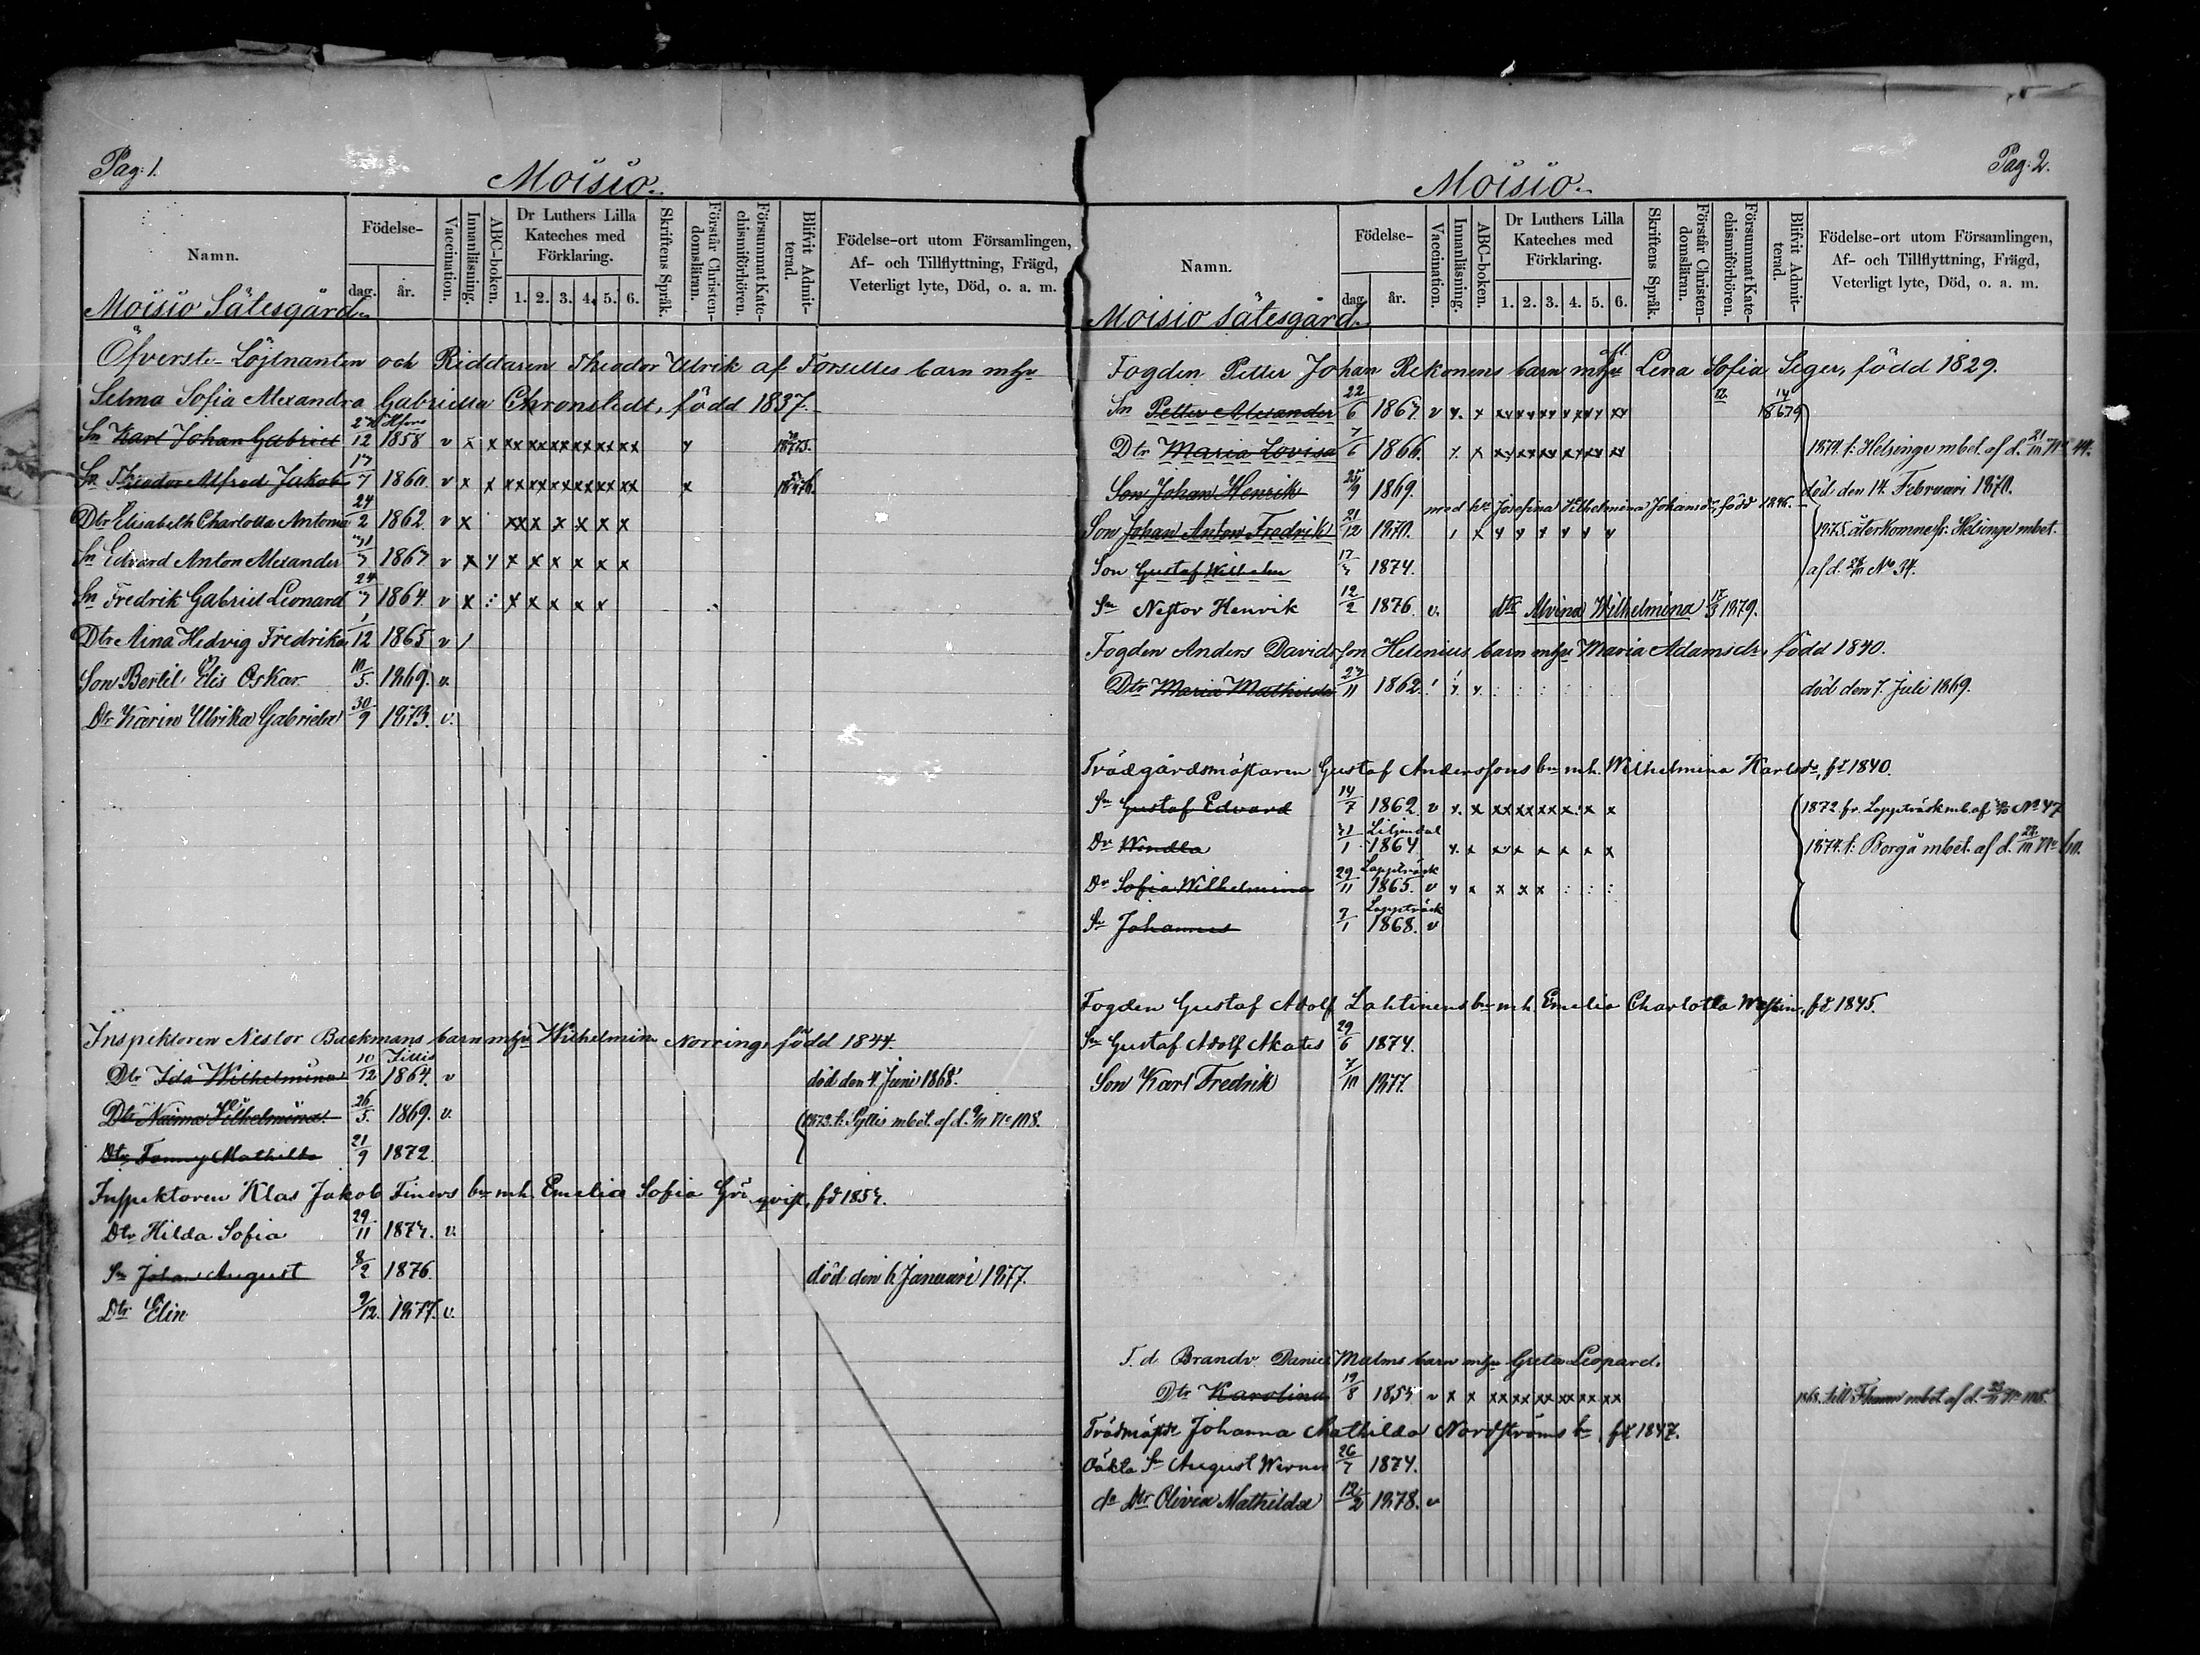 Pag: 1.
Moisio.
Namn.
Födelse-
dag.
år.
Vaccination.
Innanläsning.
ABC-boken.
Dr Luthers Lilla Kateches med Förklaring.
1. 2. 3. 4. 5. 6.
Skriftens Språk.
Förstår Christendomsläran.
Försummat Katechismiförhören.
Blifvit Admitterad.
Födelse-ort utom Församlingen,
Af- och Tillflyttning, Frägd,
Veterligt lyte, Död, o. a. m.
Moisio Sätesgård.
Öfverste-Löjtnanten och Riddaren Theodor Ulrik af Forselles barn m hu
Selma Sofia Alexandra Gabriella Chronstedt, född 1837.
Sn Karl Johan Gabriel 12 1858 v x x xx xx xx xx xx xx
Sn Theodor Alfred Jakob 17/7 1860 v x x xx xx xx xx xx xx x
Dtr Elisabeth Charlotta Antonia 24/2 1862 v x xx x x x x x
Sn Edvard Anton Alexander 1867 v x y x x x x x x
Sn Fredrik Gabriel Leonard 24/7 1864. v x : x x x x x
Dtr Aina Hedvig Fredrika 1/12 1865 v /
Son Bertil Elis Oskar 10/5. 1869. v.
Dtr Karin Ulrika Gabriela 30/9 1873. v.
Inspektoren Nestor Backmans barn m hu Wilhelmina Norring, född 1844.
Dtr Ida Wilhelmina 10/12 1864. v död den 4. Juni 1868.
Dtr Naima Wilhelmina 26/5. 1869. v. 1873. t. Pyttis mbet. af d.
Dtr Fanny Mathilda 21/9 1872.
Inspektoren Klas Jakob Finers bn m h. Emelia Sofia
Dtr Hilda Sofia 29/11 1874. v.
Sn Johan August 8/2 1876. död den 6 Januari 1877.
Dtr Elin 9/12. 1877. v.
Pag: 2.
Moisio.
Namn.
Födelse-
dag.
år.
Vaccination.
Innanläsning.
ABC-boken.
Dr Luthers Lilla Kateches med Förklaring.
1. 2. 3. 4. 5. 6.
Skriftens Språk.
Förstår Christendomsläran.
Försummat Katechismiförhören.
Blifvit Admitterad.
Födelse-ort utom Församlingen,
Af- och Tillflyttning, Frägd,
Veterligt lyte, Död, o. a. m.
Moisio Sätesgård.
Fogden Petter Johan Rekonens barn m hu Lena Sofia Seger, född 1829.
Sn Petter Alexander 22/6
Dtr Maria Lovisa 7/6 1866. 1874. t. Helsinge mbet. af d.
Son Johan Henrik 25/9 1869. död den 14. Februari 1870.
med hu Josefina Vilhelmina Johansdr, född
Son Johan Anton Fredrik 21/12 1870. 1875. återkomne fr. Helsinge mbet.
Son Gustaf Wilhelm 17 1874. af d. No 34.
Sn Nestor Henrik 12/2 1876. v. dtr Alvina Wilhelmina 1879.
Fogden Anders Davidsson Helenius barn m hu Maria Adamsdr, född 1840.
Dtr Maria Mathilda 11 1862. död den 7. Juli 1869.
Trädgårdsmästaren Gustaf Anderssons bn m h. Wilhelmina Karlsdr, fd 1840.
Sn Gustaf Edvard 14/7 1862 v 1872 fr. Lappträsk mb. af No 47
Dr Wendla Liljendal 1864 1874. t. Borgå mbet. af d.
Dr Sofia Wilhelmina 29/11 Lappträsk 1865. v
Sn Johannes 7/1 Lappträsk 1868. v
Fogden Gustaf Adolf Lahtinens bn m h Emelia Charlotta fd 1845.
Sn Gustaf Adolf Akates 29/6 1874.
Son Karl Fredrik 7/10 1877.
F. d Brandv. Daniel Malms barn m hu Greta Leopard.
Dtr Karolina 19/8 v x x xx xx xx xx xx xx
Johanna Mathilda Nordströms bn, fd 1847.
Oäkta Sn August Werner 26/7 1874.
do Dtr Olivia Mathilda 12/2 1878. v